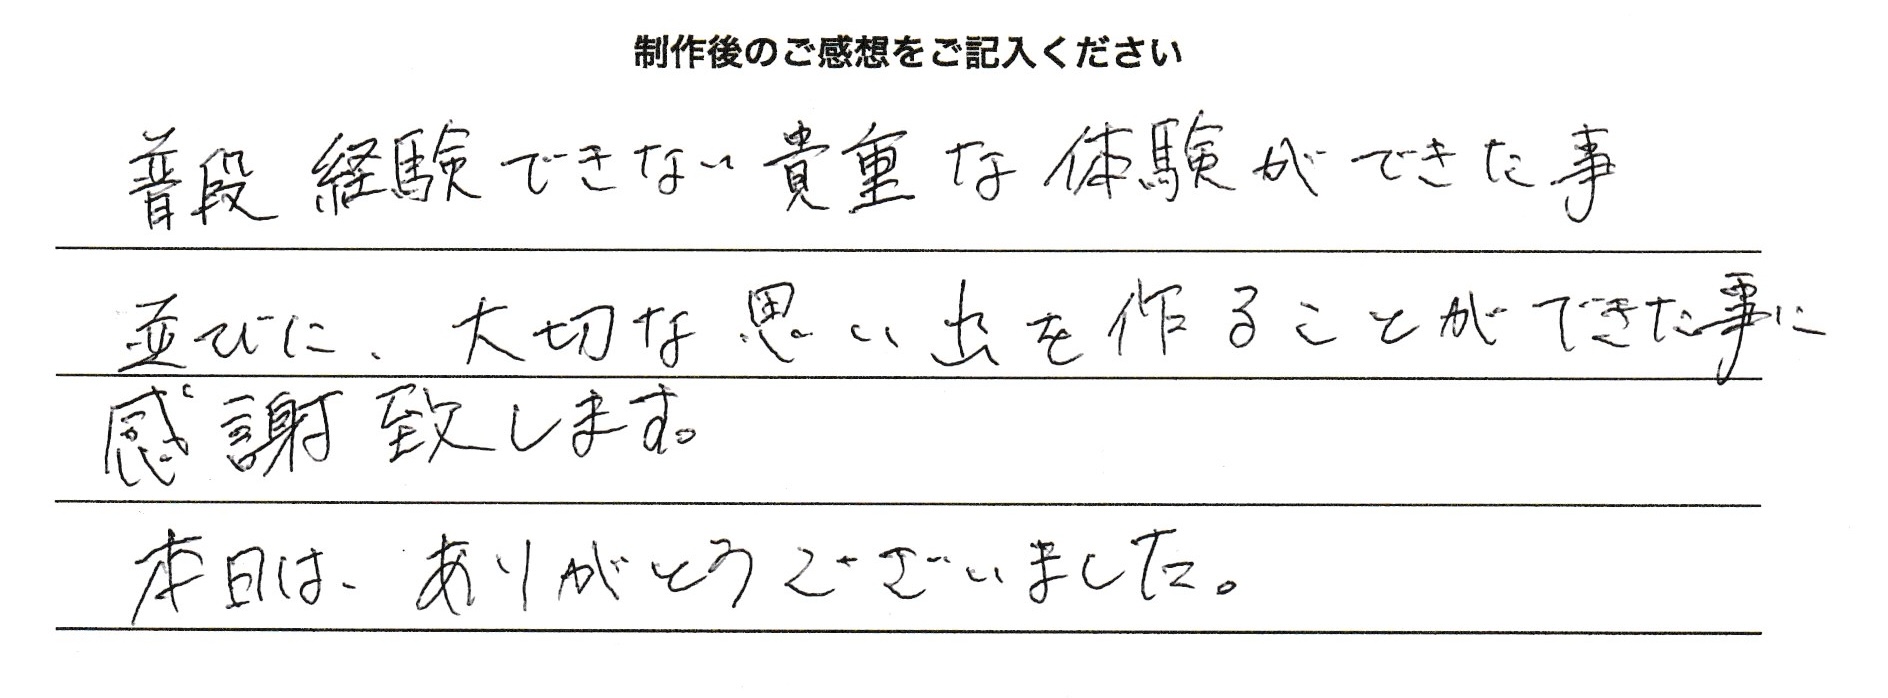 制作後のご感想をご記入ください
普段経験できない貴重な体験ができた事
並びに、大切な思い出を作ることができた事に
感謝致します。
本日は、ありがとうございました。